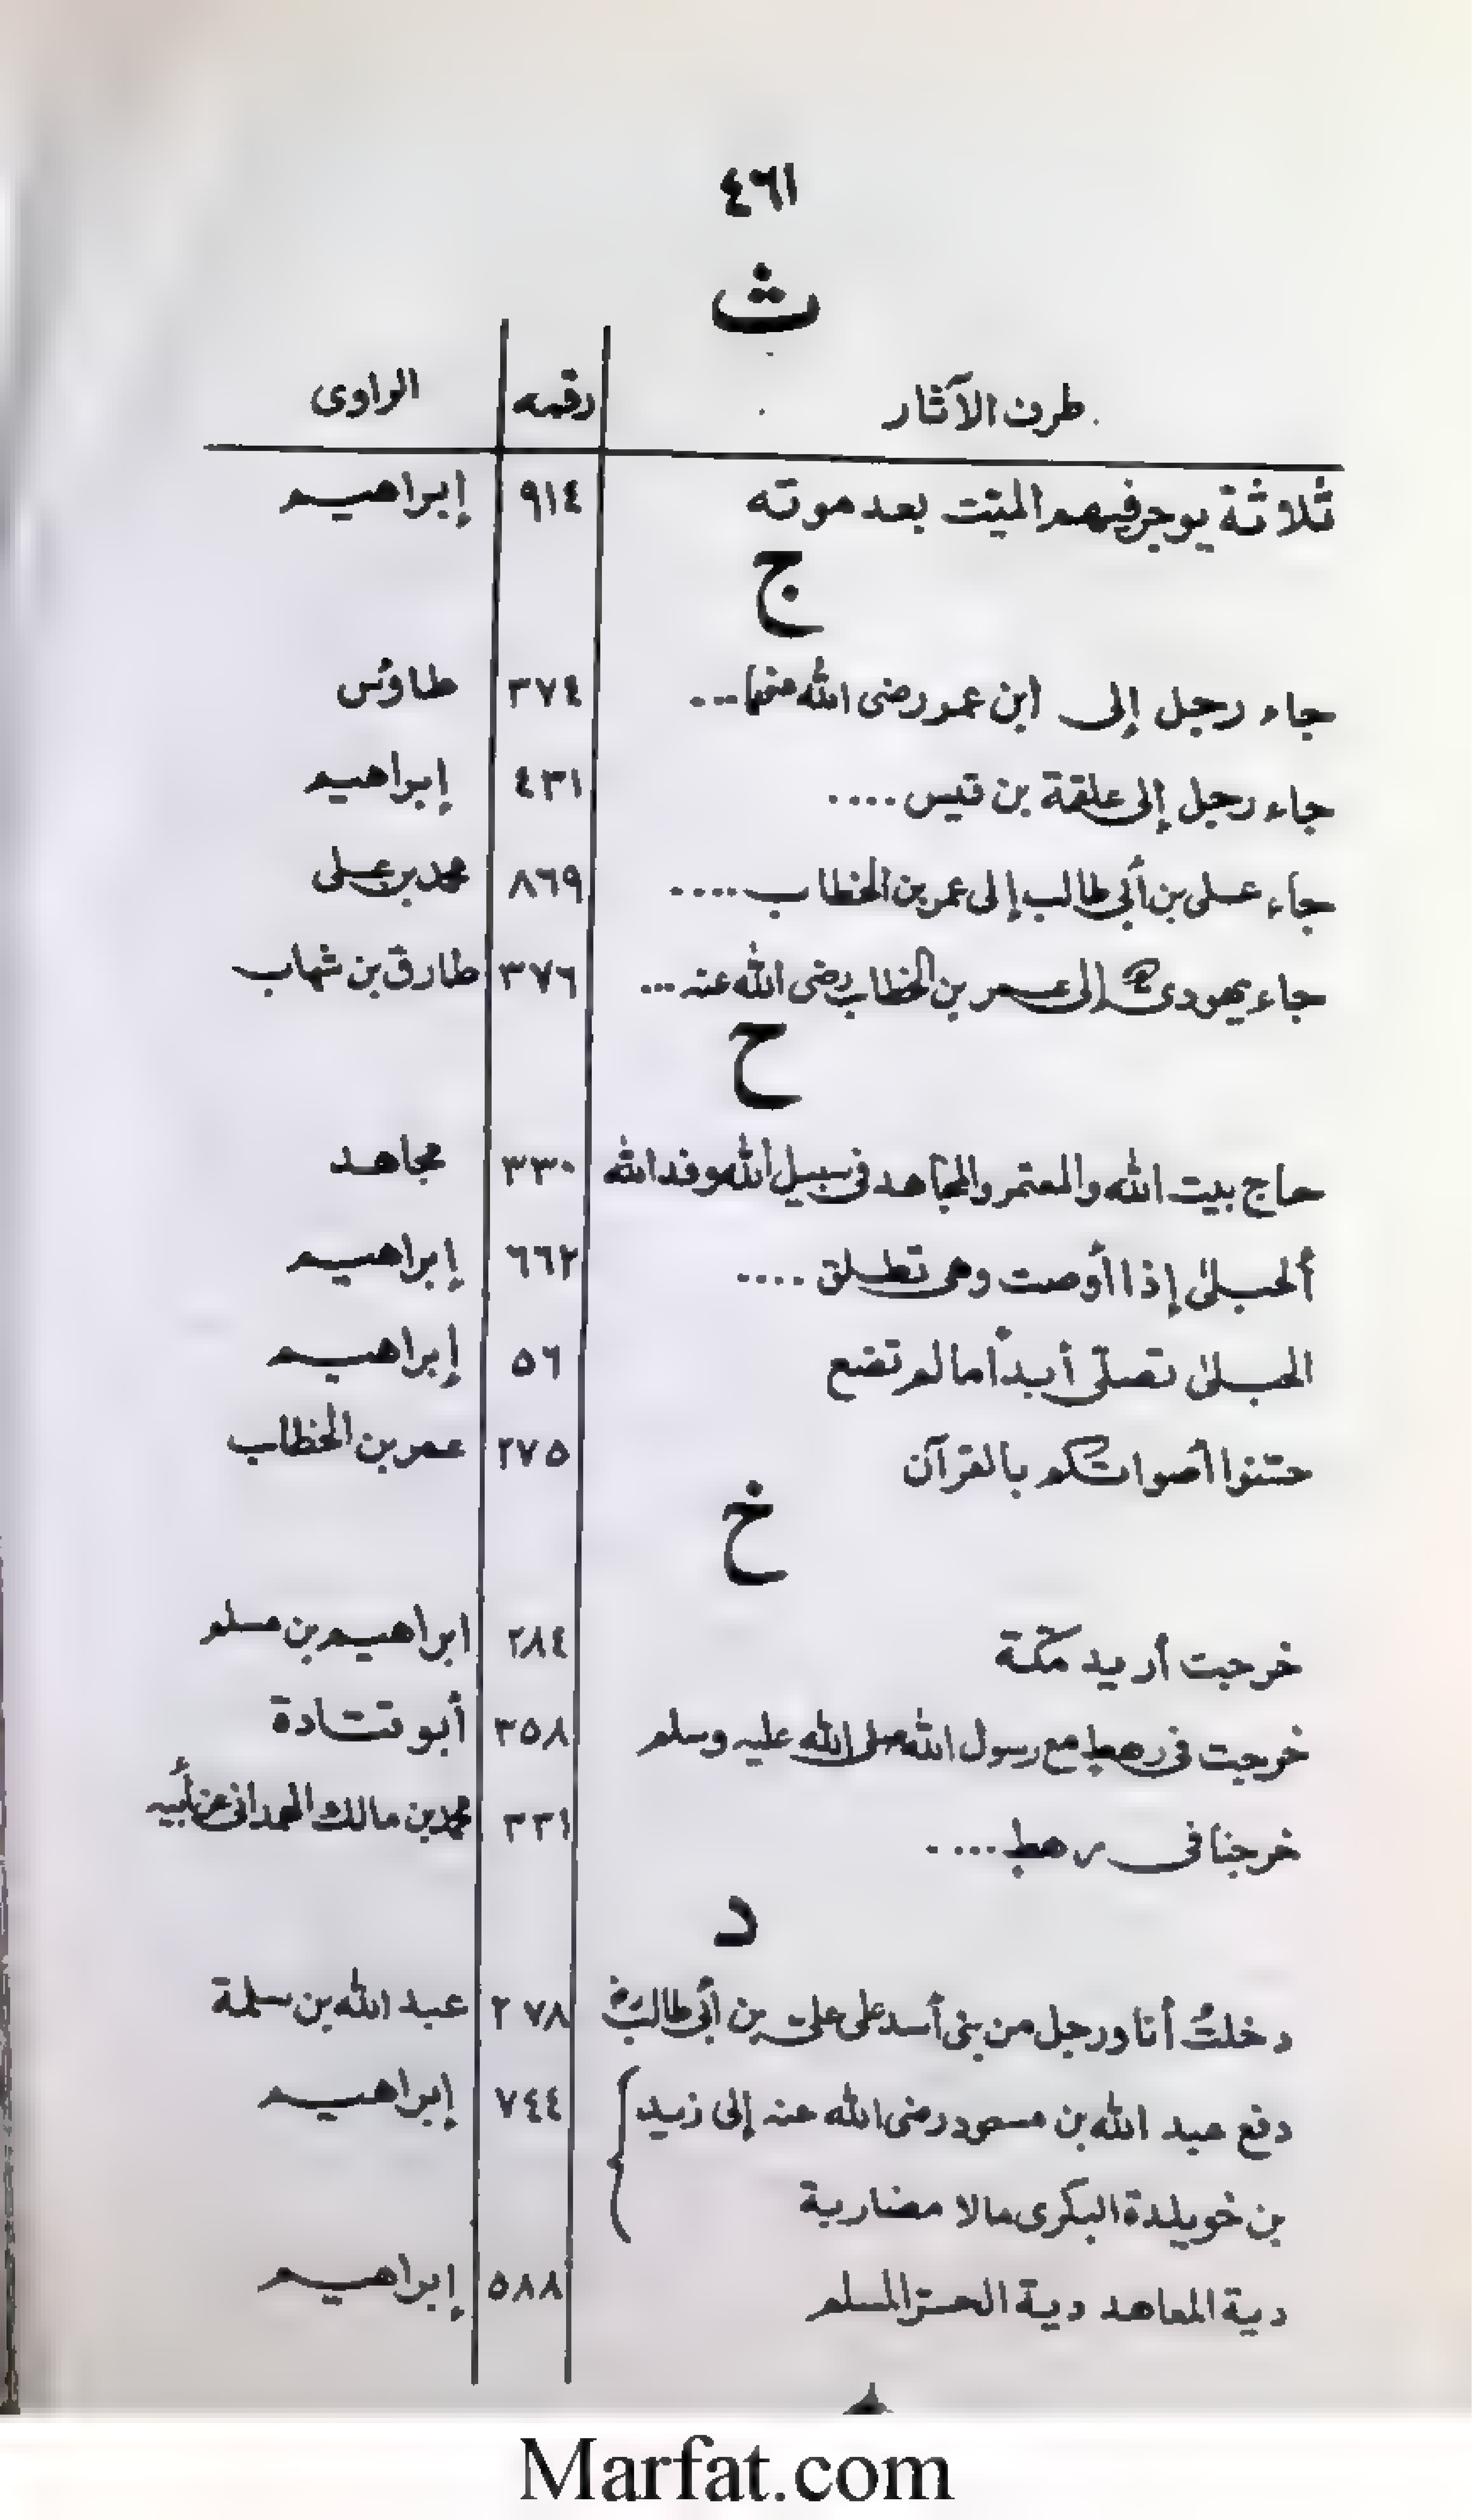 ٤٦١
ث
طرف الآثار رقمه الراوى
ثلاثة يوجر فيهم الميّت بعد موته ٩١٤ إبراهيم
ج
جاء رجل إلى ابن عمر رضى الله عنهما... ٣٧٤ طاؤس
جاء رجل إلى علقمة بن قيس .... ٤٣١ إبراهيم
جاء على بن أبي طالب إلى عمر بن الخطاب .... ٨٦٩ محمد بن على
جاء يهودى إلى عمر بن الخطاب رضى الله عنه ... ٣٧٦ طارق بن شهاب
ح
حاج بيت الله والمعتمر والمجاهد فى سبيل الله وفد الله ٣٣٠ مجاهد
ألحبلىٰ إذا أوصت وهى تطلق .... ٦٦٢ إبراهيم
الحبلىٰ تصلّى أبداً ما لم تضع ٥٦ إبراهيم
حسّنوا أصواتكم بالقرآن ٢٧٥ عمر بن الخطاب
خ
خرجت أريد مكّة ٢٨٤ ابراهيم بن مسلم
خرجت فى رهط مع رسول الله صلى الله عليه وسلم ٣٥٨ أبو قتادة
خرجنا فى رهط .... ٣٣١ محمد بن مالك الهمدانى عن أبيه
د
دخلتُ أنا ورجل من بنى أسد على علىّ بن أبى طالبؓ ٢٧٨ عبد الله بن سلمة
دفع عبد الله بن مسعود رضى الله عنه إلى زيد ٧٤٤ إبراهيم
بن خويلدة البكرى مالا مضاربة
دية المعاهد دية الحرّ المسلم ٥٨٨ إبراهيم
Marfat.com